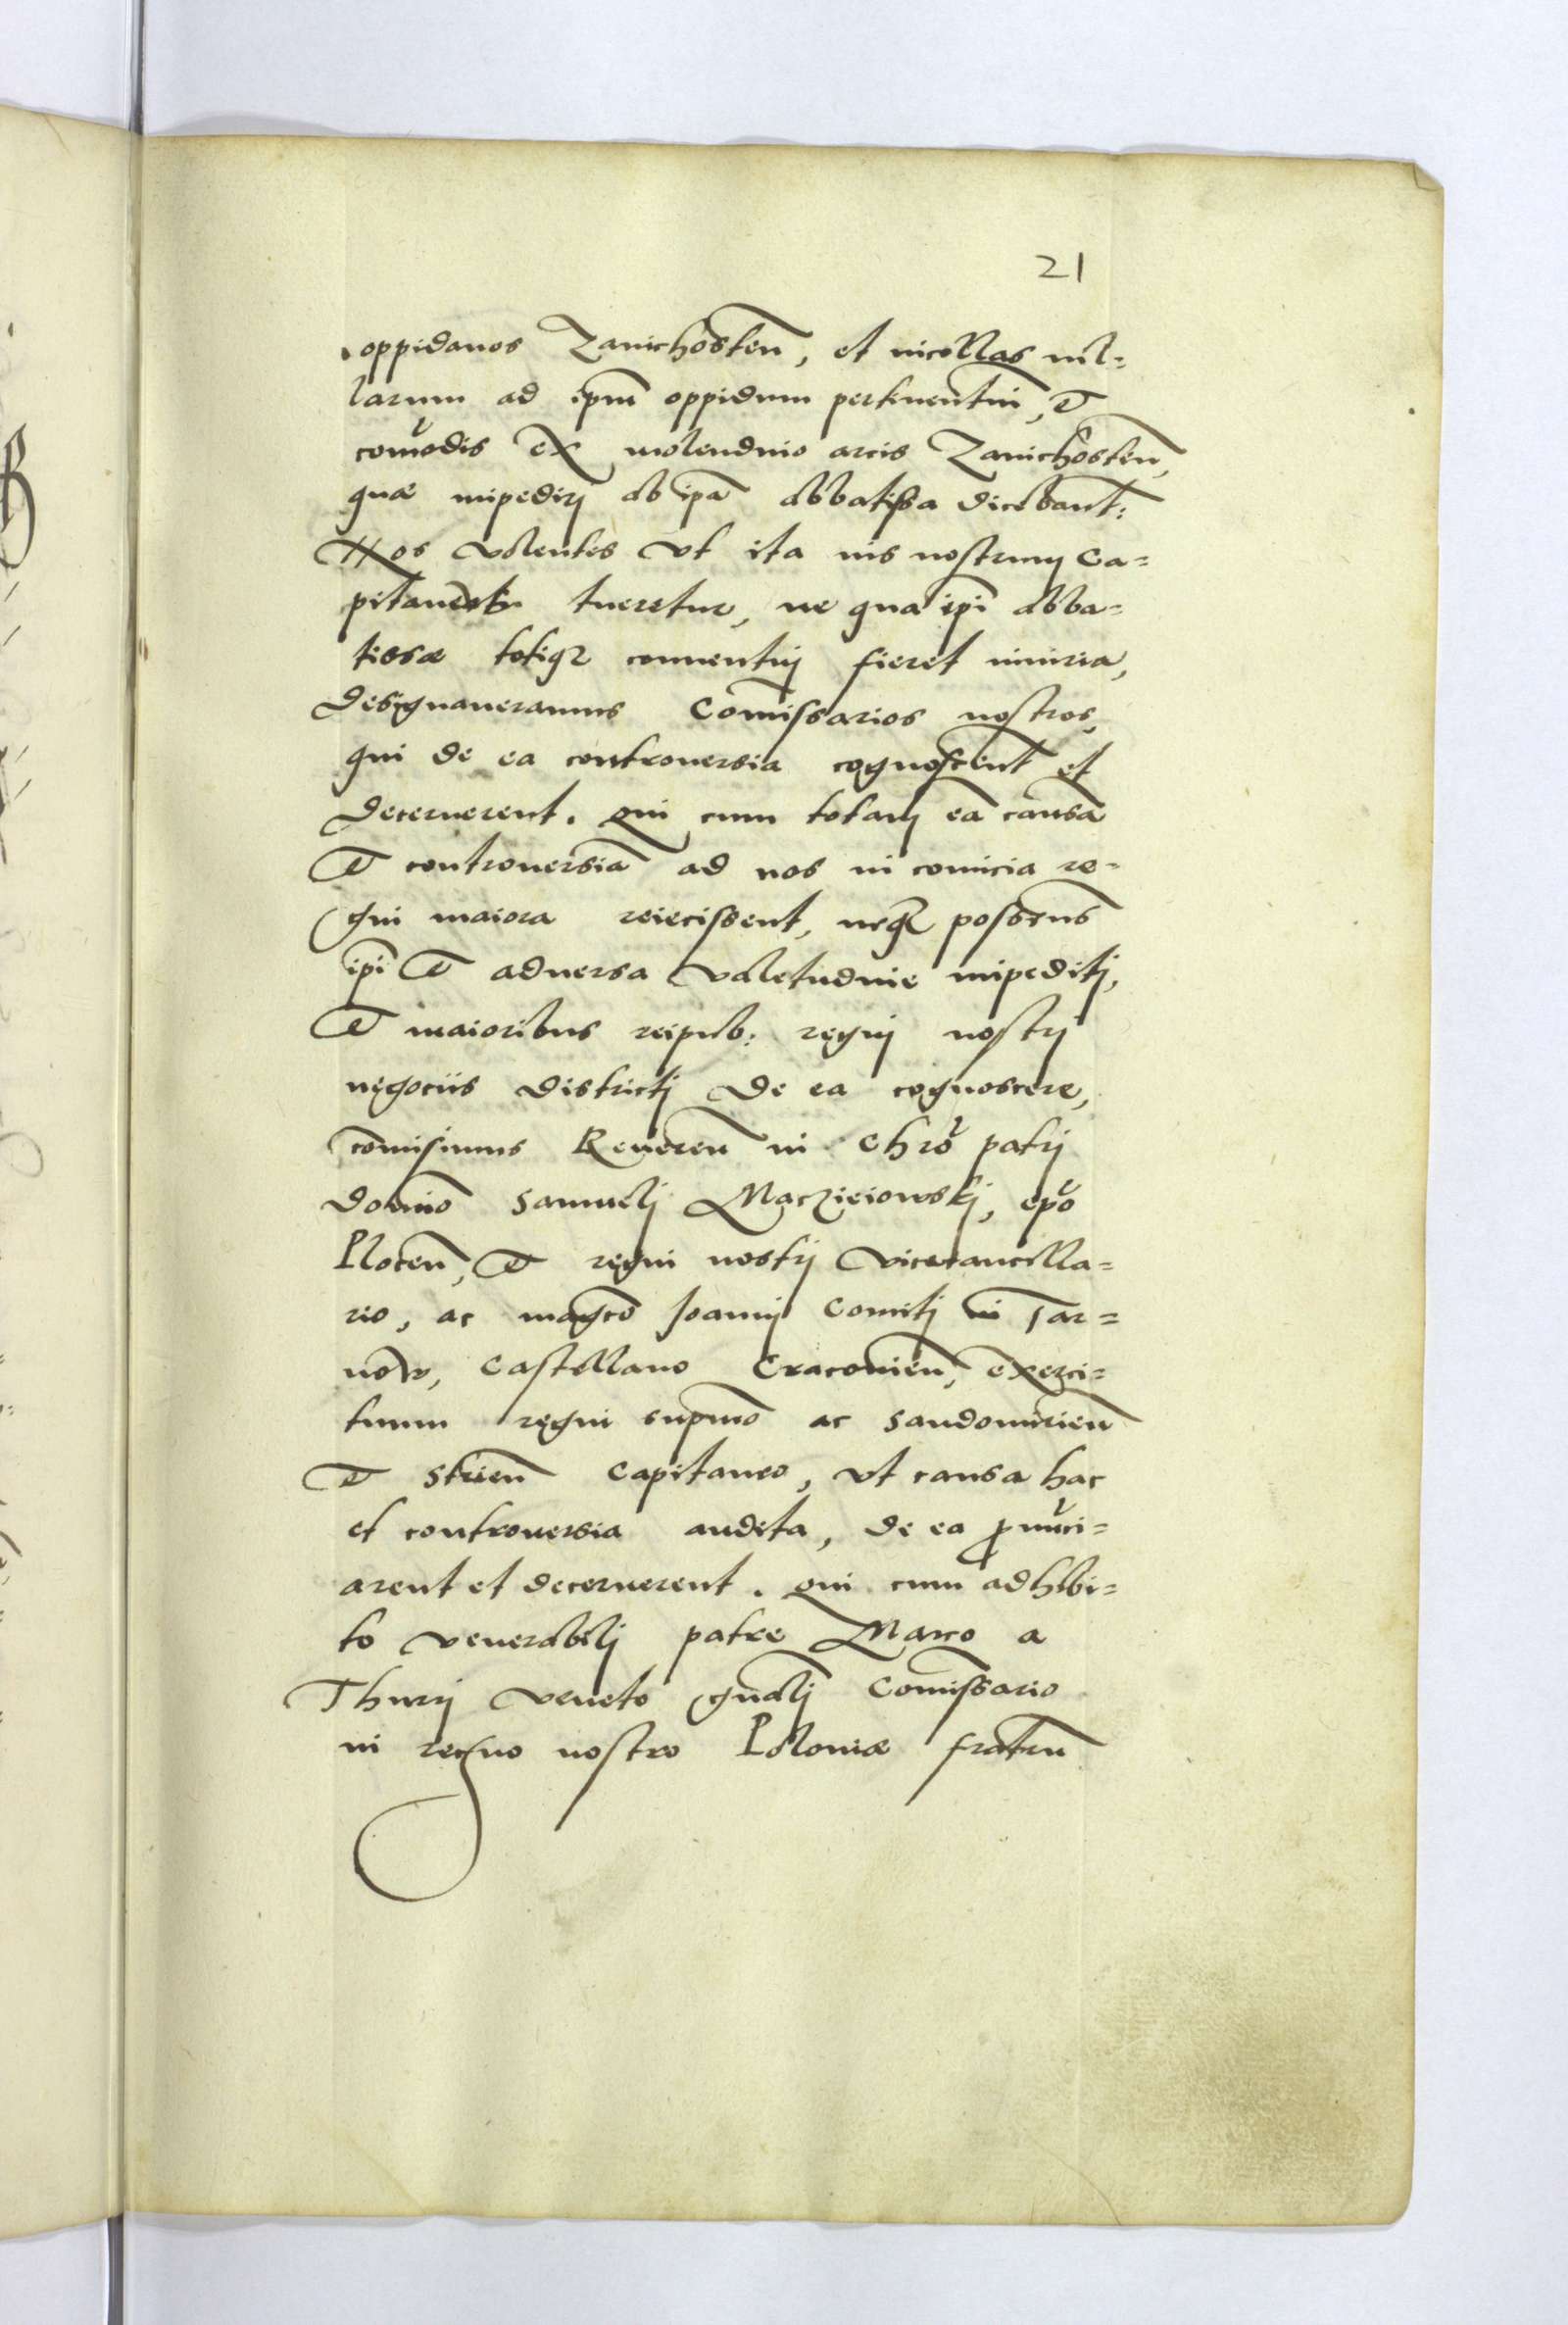 21
oppidanos Zanichosteñ, et incollas uil=
larum ad ipm̃ oppidum pertinentiũ, et
comodis ex molendino arcis Zanichosteñ,
quæ impedirj ab ipã abbatissa dicebant̃:
Nos volentes vt ita ius nostrum ca=
pitaneatus tueretur, ne qua ipĩ abba=
tissæ totiq3 conuentuj fieret iniuria,
designaueramus Comissarios nostros,
qui de ea controuersia cognoscerent et
decernerent. qui cum totam eã causã
et controuersiã ad nos in comicia re=
gni maiora reiecissent, neq3 possemus
ipĩ et aduersa valetudine impeditj,
et maioribus reipub: regnj nostrj
negociis districtj de ea cognoscere,
comisimus Reueren̄ in Chrõ patrj
domino Samuelj Macziejowskj, epõ
Ploceñ, et regni nostrj vicecancella=
rio, ac magco Joannj Comitj in Tar=
now, castellano Cracouieñ, exerci=
tuum regni supmo ac Sandomirieñ
et Strieñ Capitaneo, vt causa hac
et controuersia audita, de ea ꝓnũci=
arent et decernerent. qui cum adhibi=
to venerabilj patre Marco a
Thurrj veneto gñalj Comissario
in regno nostro Poloniæ fratrũ